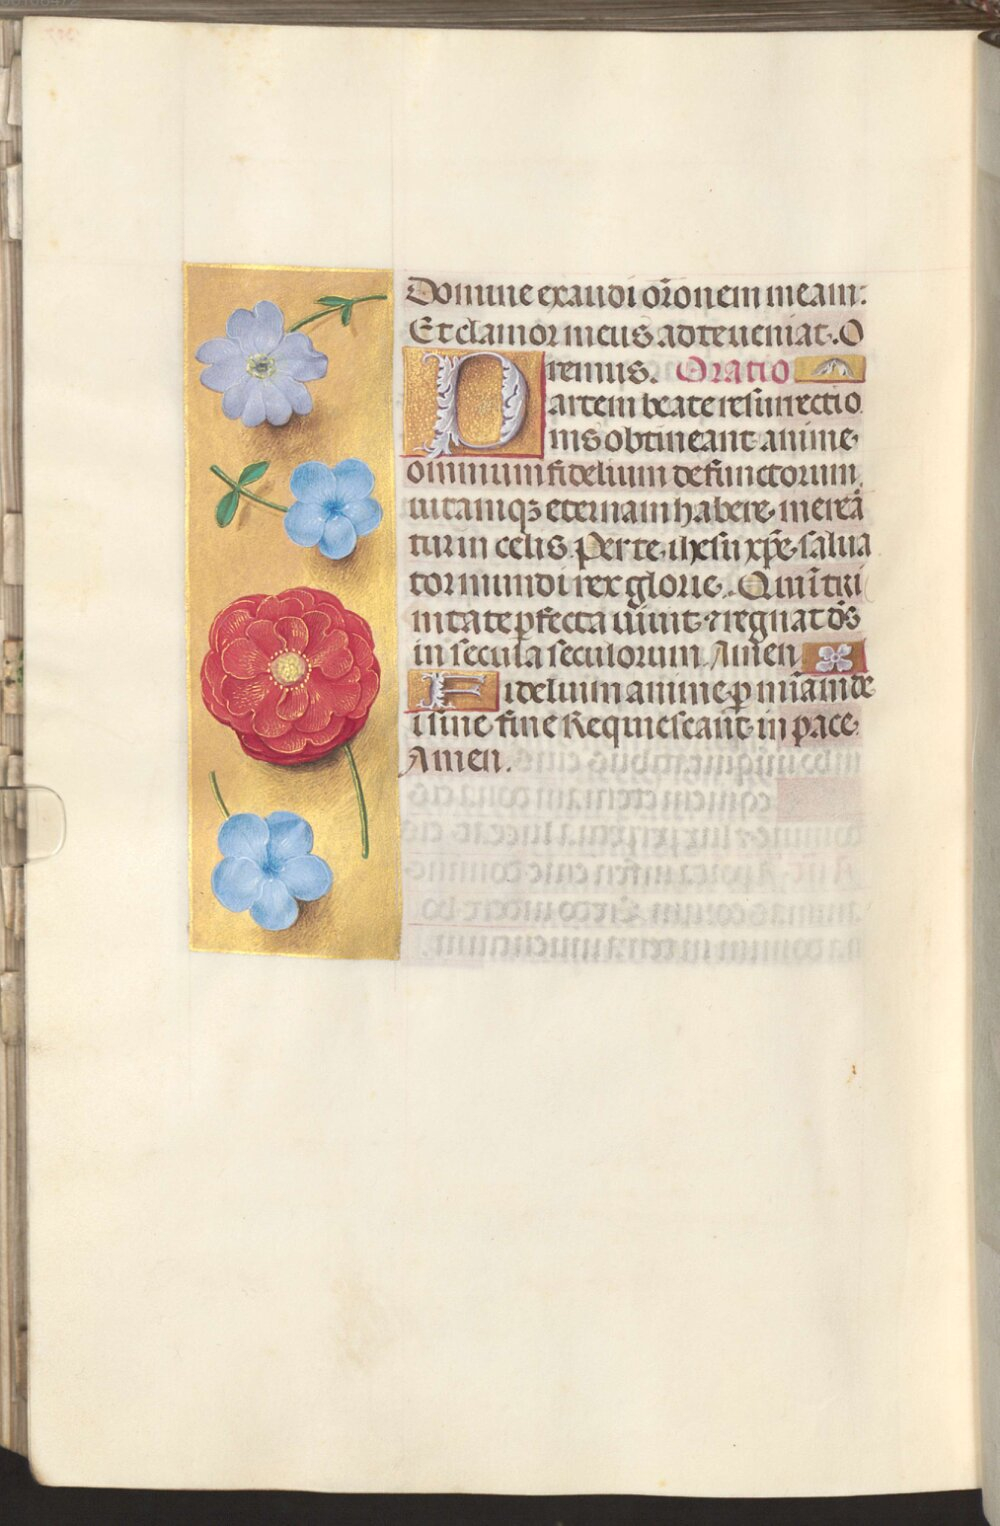 Domine exaudi or̄onem meam:
Et clamor meus ad te ueniat. O
remus. Oratio
Partem beate resurrectio
nis obtineant anime
omnium fidelium defunctorum
uitamqꝫ eternam habere mereā
tur in celis. Per te ihesu xp̄e salua
tor mundi rex glorie. Qui ī tri
nitate ꝑfecta uiuit ⁊ regnat dūs
in secula seculorum. Amen
Fidelium anime ꝑ mīam de
i sine fine Requiescant in pace
Amen.